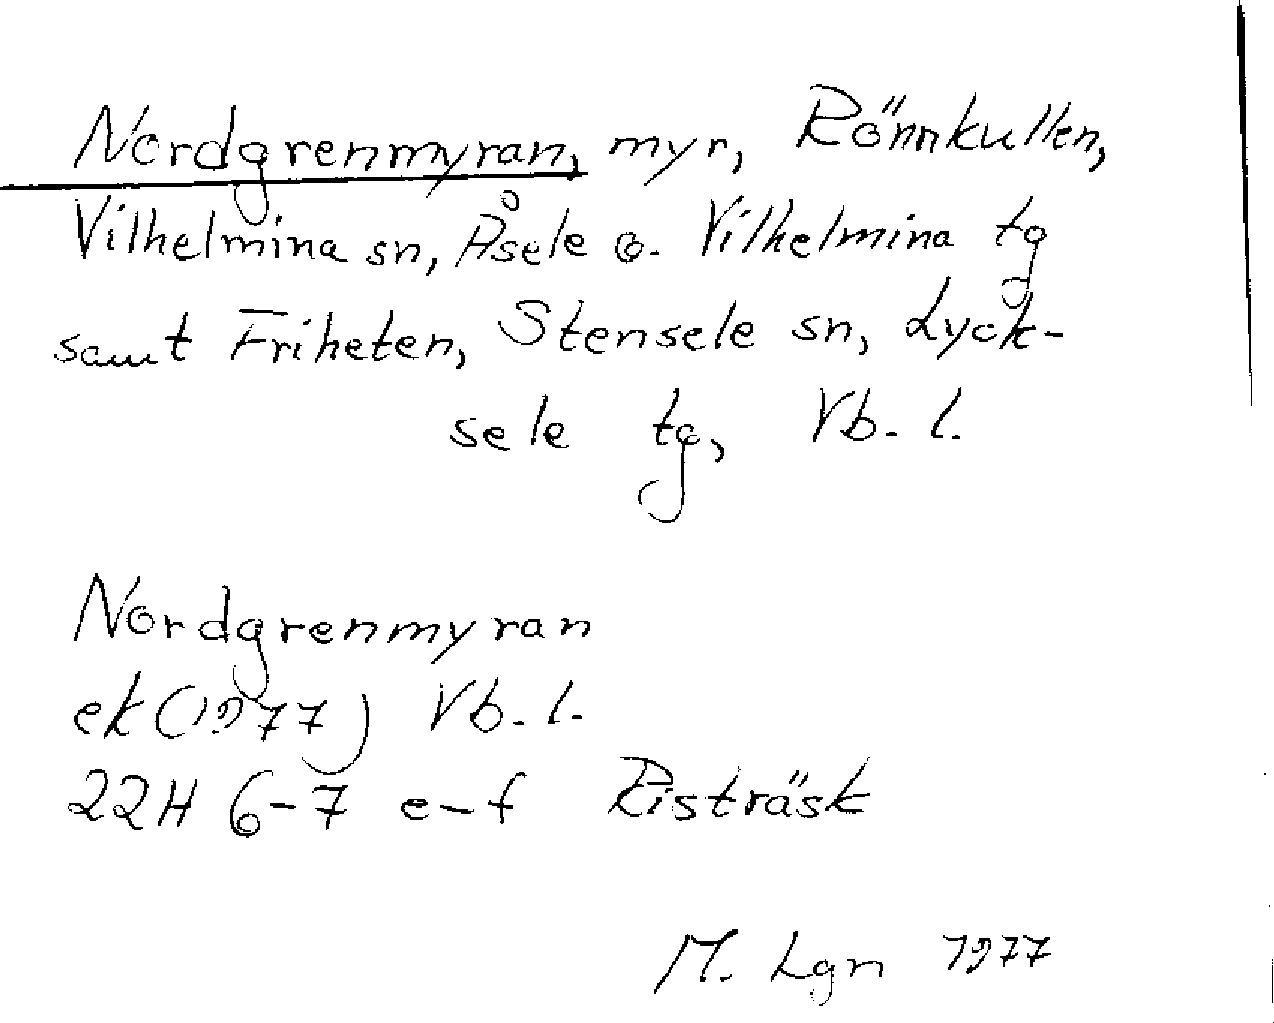 Nordgrenmyran, myr, Rönnkullen,
Vilhelmina sn, Åsele o. Vilhelmina tg
samt Friheten, Stensele sn, Lyck-
sele tg, Vb. l.
Nordgrenmyran
ek (1977) Vb. l.
22H 6-7 e-f Risträsk
M. Lgn 1977